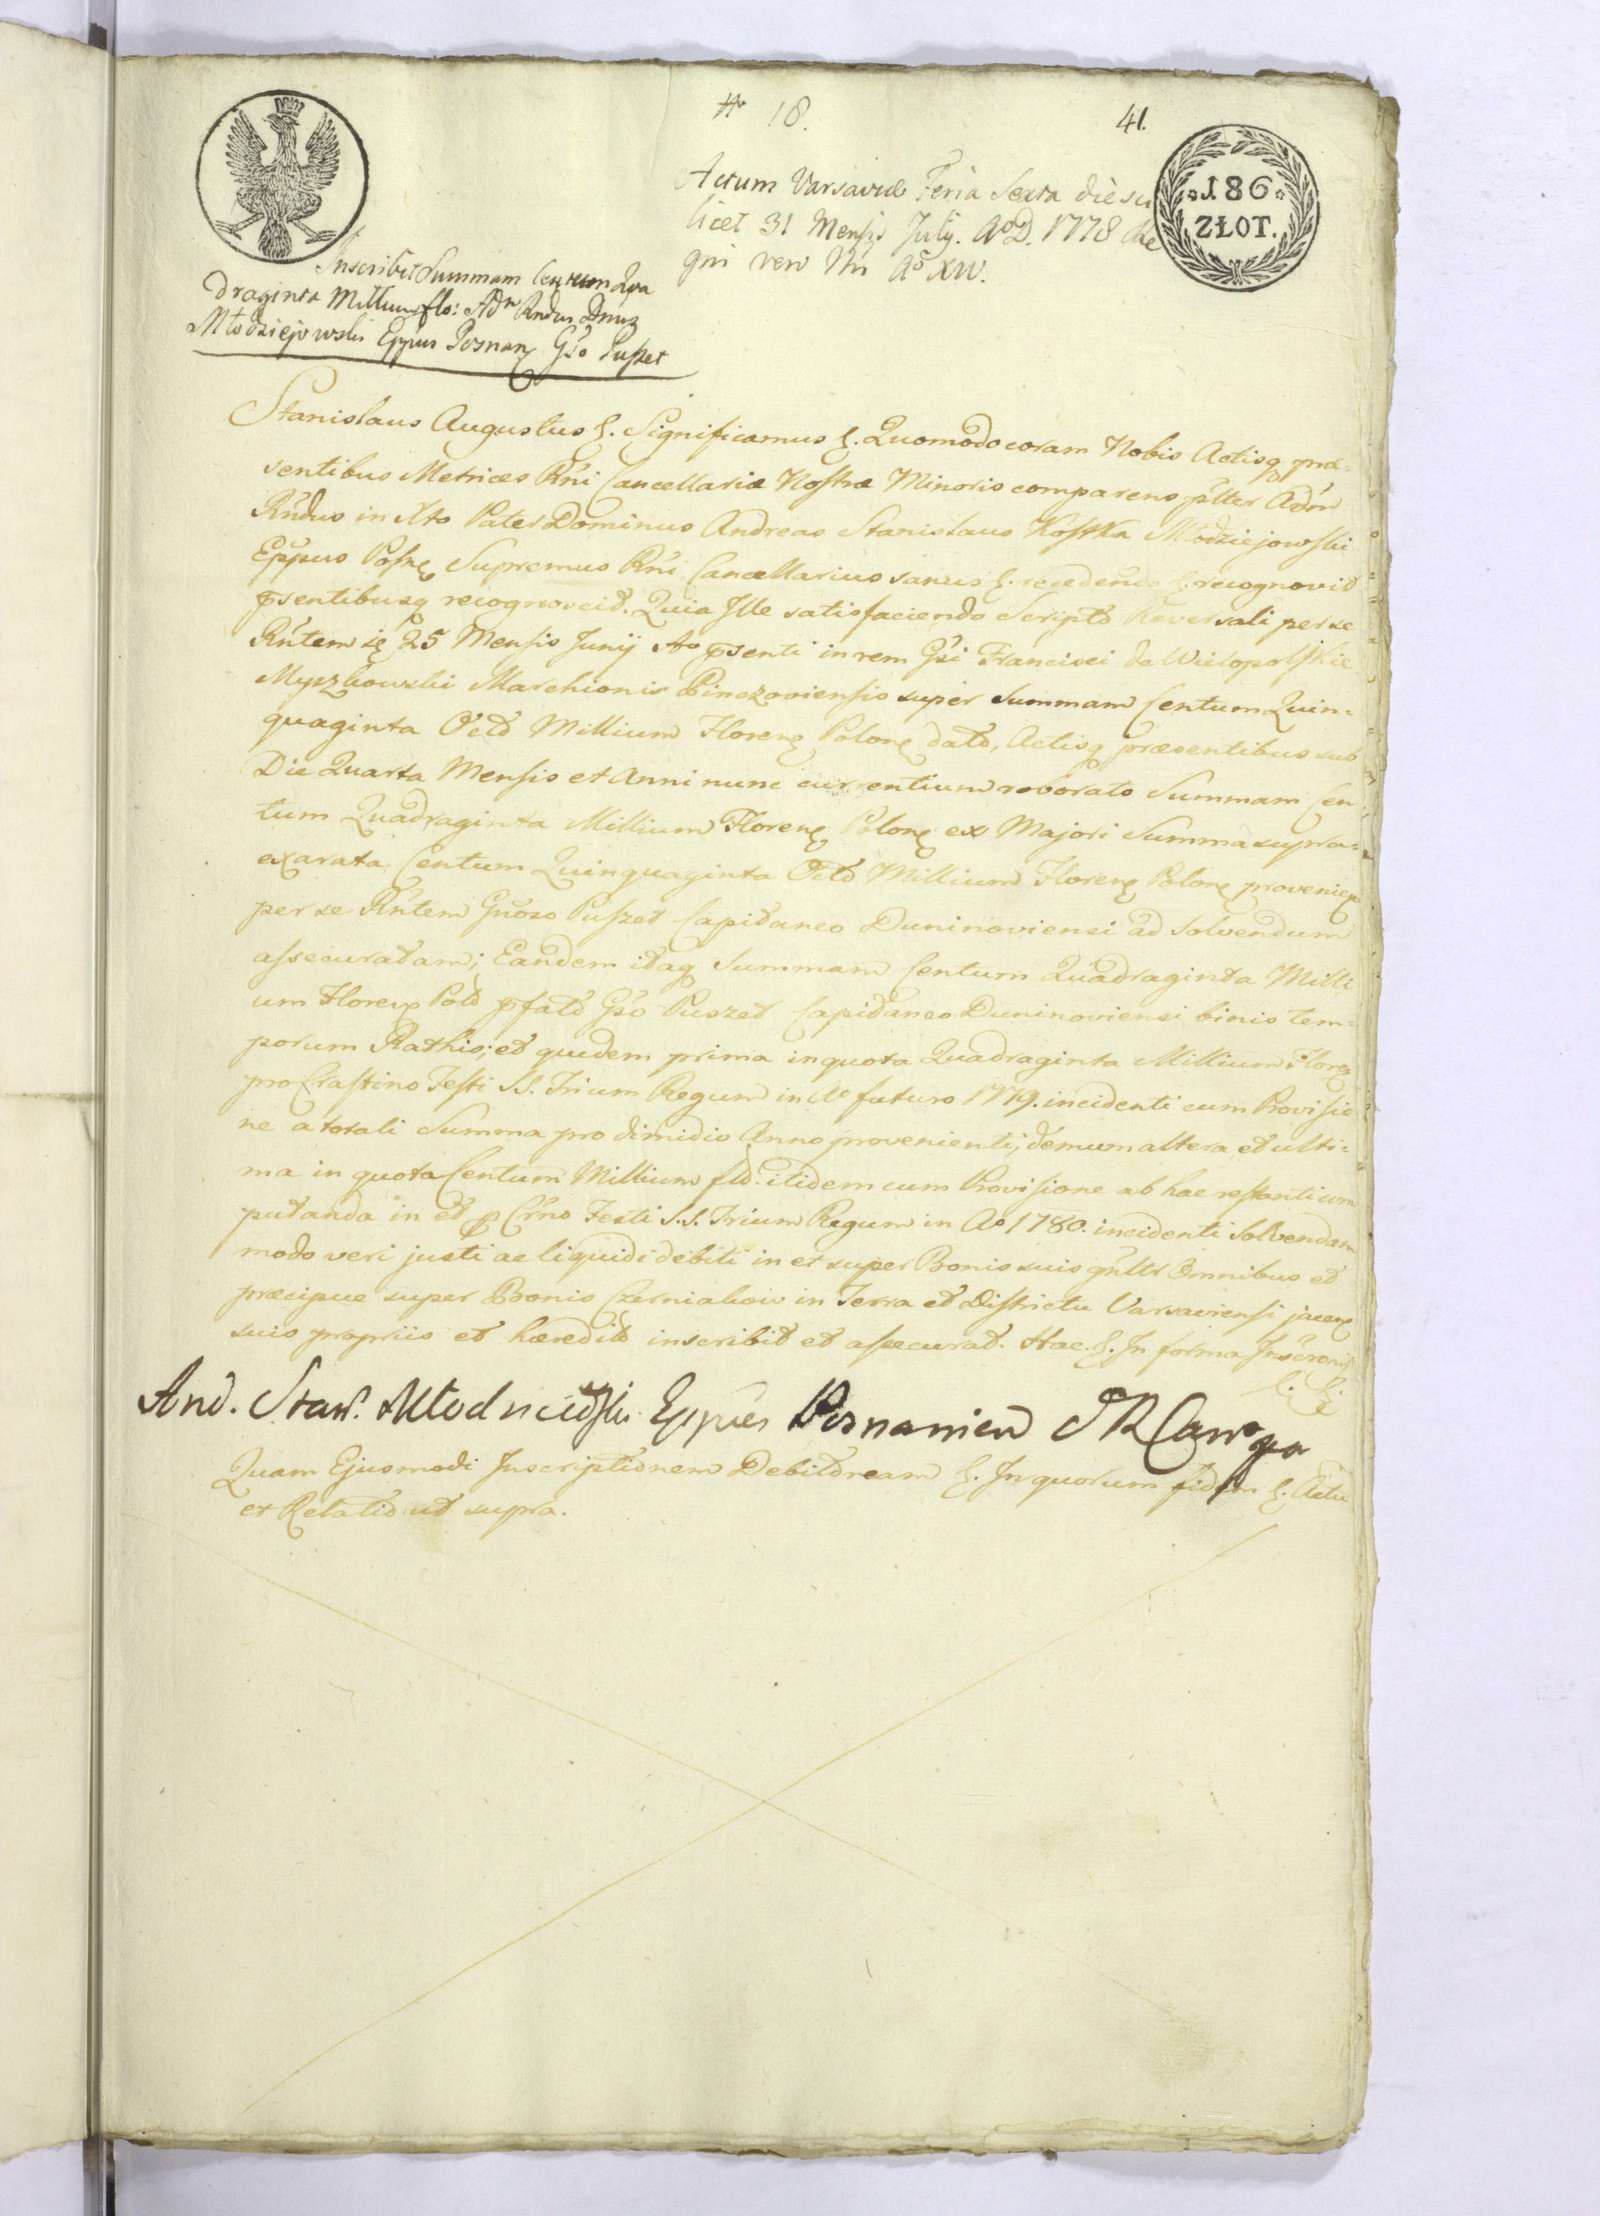 No 18.
41.
186
ZŁOT.
Actum Varsaviæ Feria Sexta die sci
licet 31 Mensis Julij. Ao D. 1778 Re
gni vero Nri Ao XIV.
Inscribit Summam Centum Qua
draginta Millium flo: Adm Rndus Dnus
Młodziejowski Eppus Posnan Gso Puszet
Stanislaus Augustus &. Significamus &. Quomodo coram Nobis Actisq præ-
sentibus Metrices Rni Cancellariæ Nostræ Minoris comparens pltter Adm
Rndus in Xto Pater Dominus Andreas Stanislaus Kostka Młodziejowski
Eppus Posn Supremus Rni Cancellarius sanus &. recedendo &. recognovit
psentibusq recognoscit. Quia Ille satisfaciendo Scripto Reversali per se
Rntem 25 Mensis Junij Ao psenti in rem Gsi Francisci de Wielopolskie
Myszkowski Marchionis Pinczoviensis super Summam Centum Quin-
quaginta Octo Millium Floren Polon dato, Actisq præsentibus sub
Die Quarta Mensis et Anni nunc currentium roborato Summam Cen-
tum Quadraginta Millium Floren Polon ex Majori Summa supra-
exarata Centum Quinquaginta Octo Millium Floren Polon provenien
per se Rntem Gnoso Puszet Capitaneo Duninoviensi ad solvendum
assecuratam; Eandem itaq Summam Centum Quadraginta Milli
um Floren Polo pfato Gso Puszet Capitaneo Duninoviensi binis tem-
porum Rathis; et quidem prima in quota Quadraginta Millium Floren
pro Crastino Festi S.S. Trium Regum in Ao futuro 1779. incidenti cum Provisio
ne a totali Summa pro dimidio Anno provenienti, demum altera et ulti-
ma in quota Centum Millium flo: itidem cum Provisione ab hac restanti com
putanda in et p Crno Festi S.S. Trium Regum in Ao 1780. incidenti solvendam
modo veri justi ac liquidi debiti in et super Bonis suis gnltr Omnibus et
præcipue super Bonis Czerniakow in Terra et Districtu Varsaviensi jacen
suis propriis et hæredit inscribit et assecurat. Hac. &. In forma
And. Stan. Młodzieiowski Eppus Posnanien S R Canrg
Quam Ejusmodi Inscriptionem Debitoream &. In quorum fidem &. Actu
et Relatio ut supra.